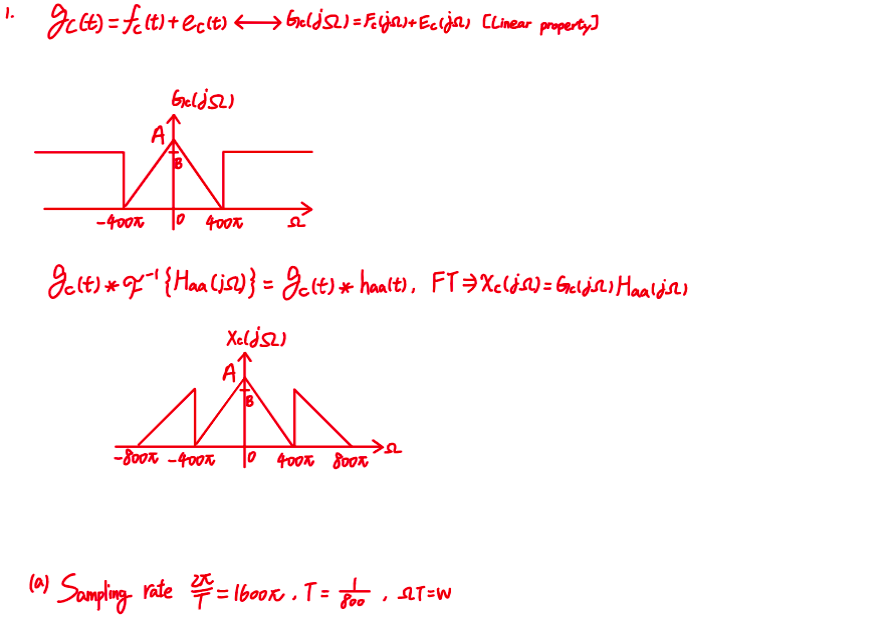 1. g_c(t) = f_c(t) + e_c(t) ⟷ G_c(jΩ) = F_c(jΩ) + E_c(jΩ) [Linear property]
G_c(jΩ)
A
B
-400π 0 400π Ω
g_c(t) * ℱ^-1{H_aa(jΩ)} = g_c(t) * h_aa(t), FT ⇒ X_c(jΩ) = G_c(jΩ) H_aa(jΩ)
X_c(jΩ)
A
B
-800π -400π 0 400π 800π Ω
(a) Sampling rate 2π/T = 1600π, T = 1/800, ΩT = w